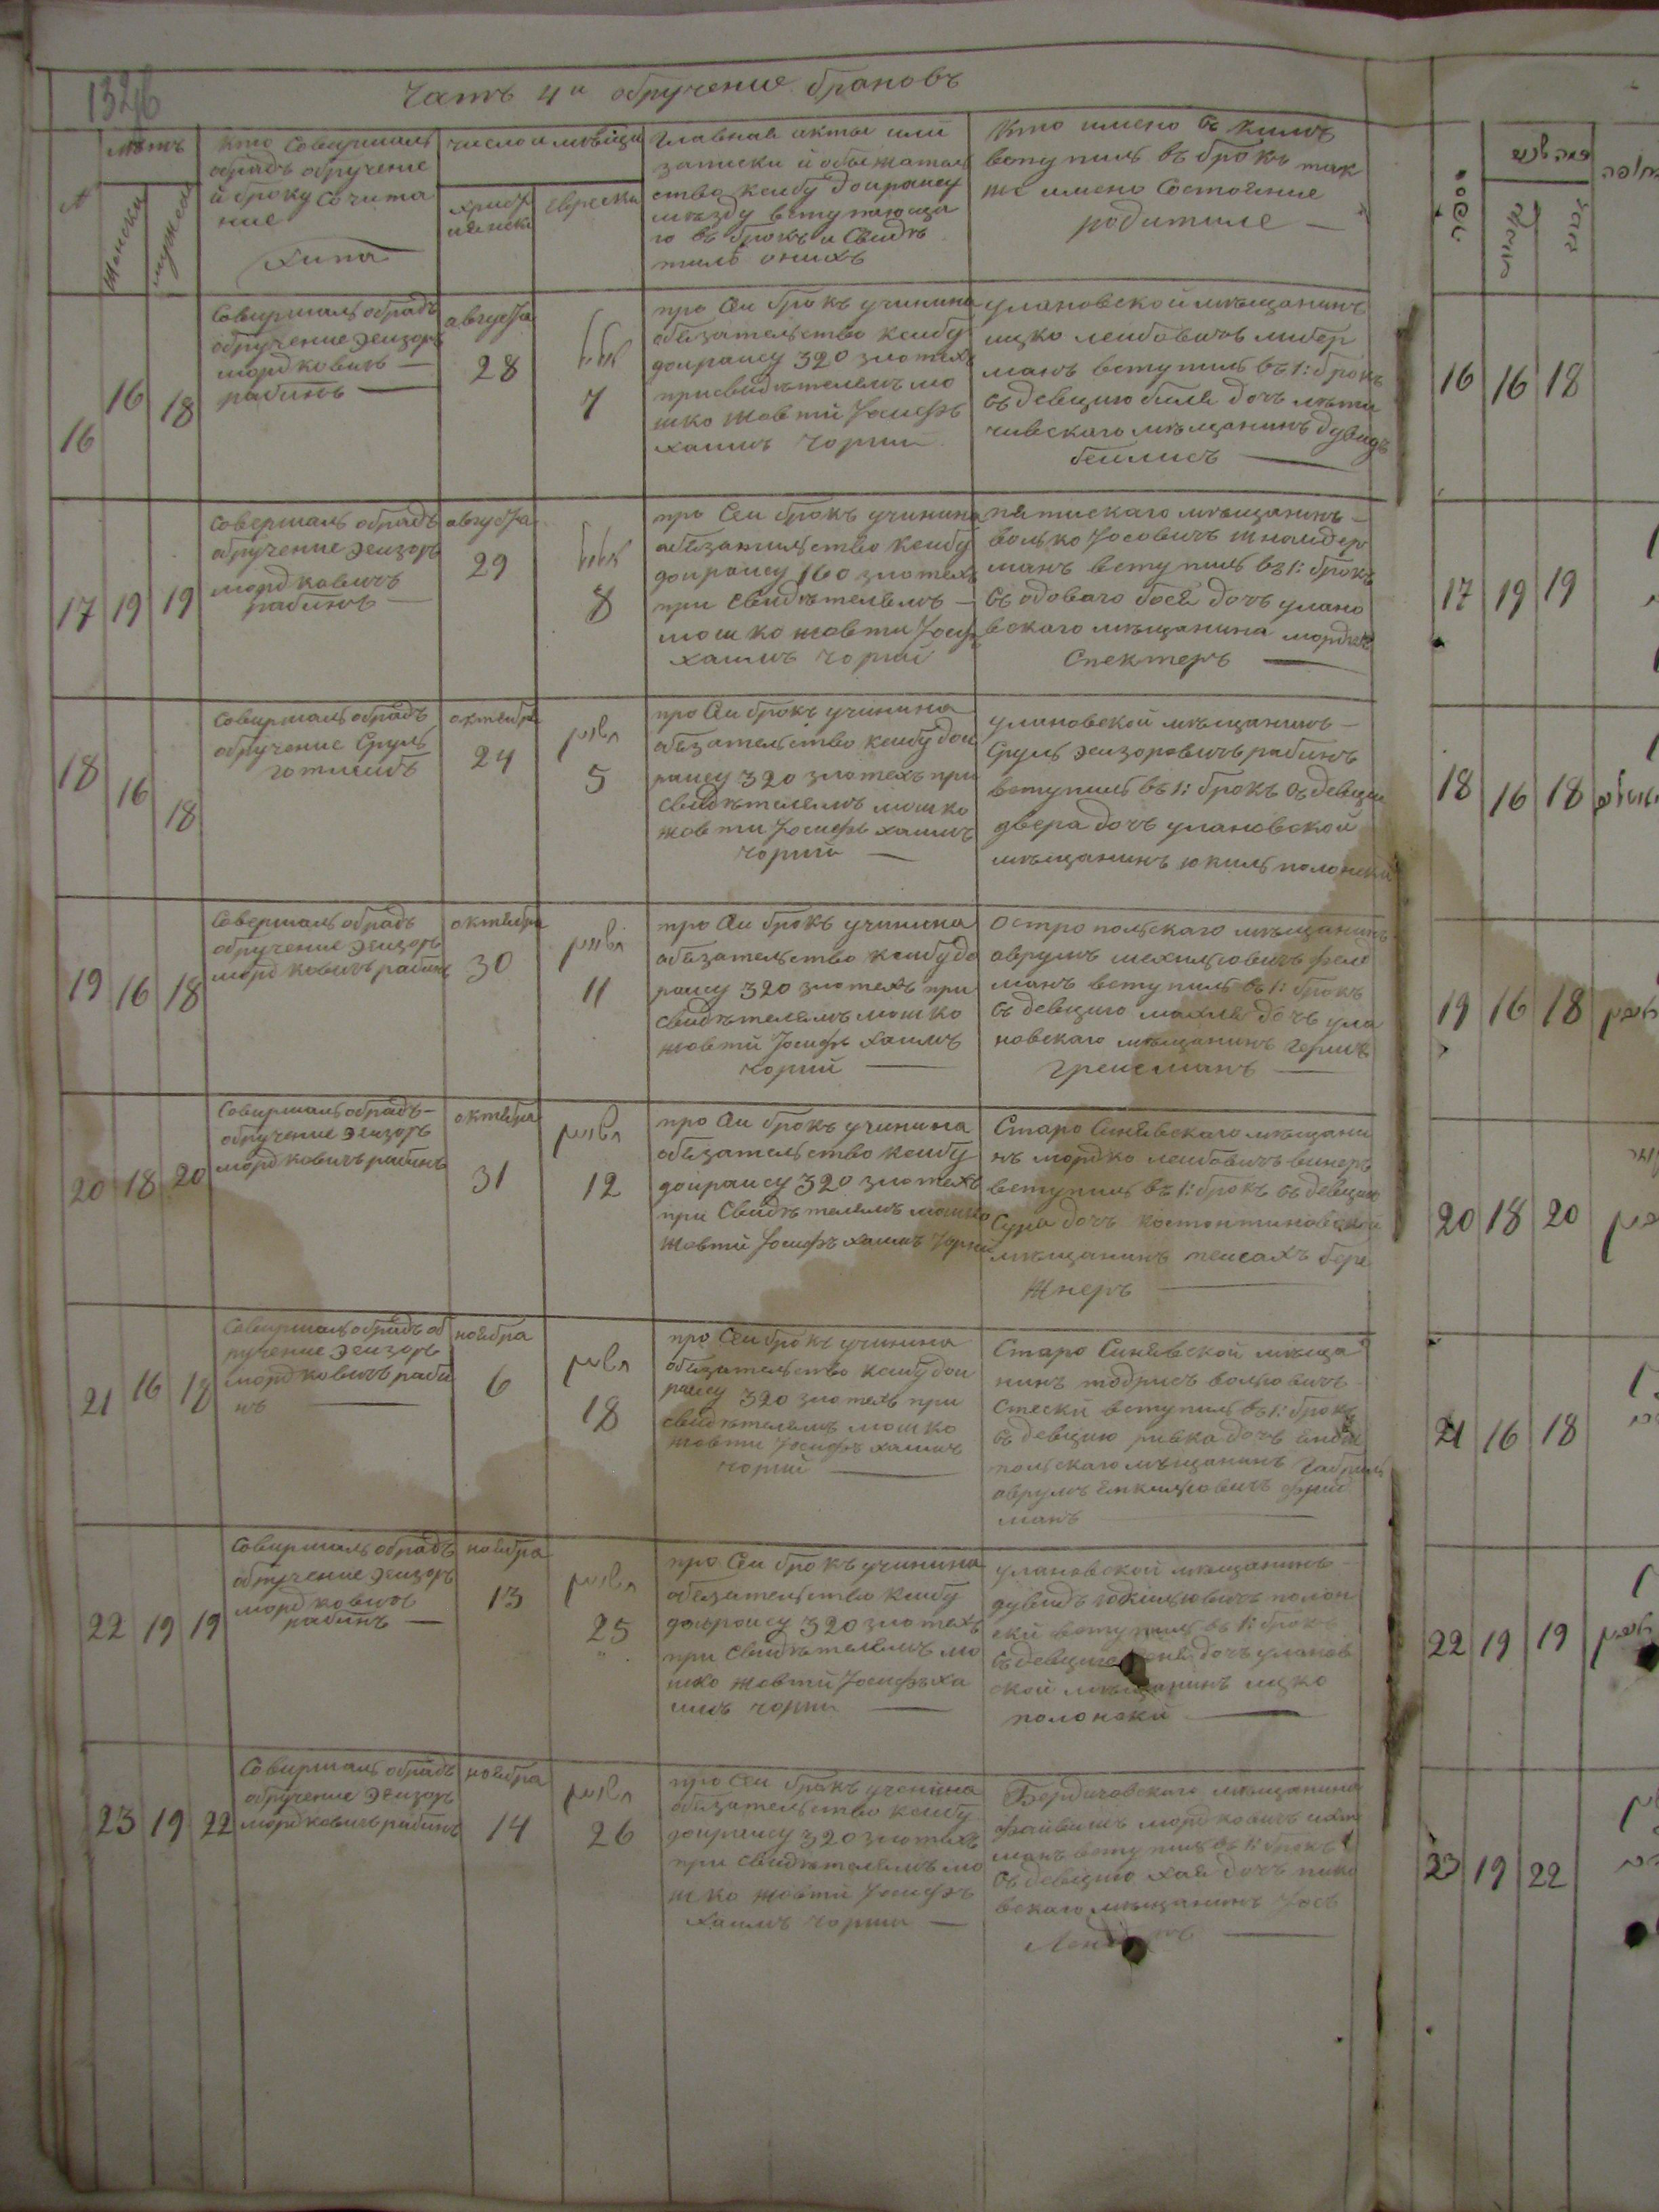 1326
Часть 4и обручение браковъ
№
лѣтъ
Женски
мужеск
Кто Совиршалъ
обрадъ обручение
и броку Сочита
ние
Хипа
число и мѣсяци
христ
иянски
еврески
Главная акты или
записки и обызатель
ство кеибу доирансу
между вступающа
го въ брокъ и Свидѣ
тилѣ онихъ
Кто имено съ кимъ
вступилъ въ брокъ так
же имено Состояние
родителе —
16
16
18
Совиршалъ обрадъ
обручение Элизоръ
мордковичъ —
рабинъ —
августа
28
אלול
7
про Сеи брокъ учинина
обязательство кеибу
доирансу 320 злотехъ
присвидѣтелямъ мо
шко жовти Іосифъ
хаимъ чорни
улановской мѣщанинъ
ицко леибовичъ либер
манъ вступилъ въ 1: брокъ
съ девицию биля дочъ лѣти
чивскаго мѣщанинъ дувидъ
беилисъ —
17
19
19
Совершалъ обрадъ
обручение Элизоръ
мордковичъ
рабинъ —
августа
29
אלול
8
про Сеи брокъ учинина
обязательство кеибу
доирансу 160 злотехъ
при Свидѣтелямъ —
мошко жовти Іосиф
хаимъ чорний
пятискаго мѣщанинъ —
волько Іосовичъ шнаидер
манъ вступилъ въ 1: брокъ
съ одоваго бося дочъ улано
вскаго мѣщанина мордко
Спекторъ —
18
16
18
Совиршалъ обрадъ
обручение Сруль
готлибъ
октября
24
חשון
5
про Сеи брокъ учинина
обязательство кеибу дои
рансу 320 злотехъ при
Свидѣтелямъ мошко
жовти Іосифъ хаимъ
чорний —
улановской мѣщанинъ —
Сруль Элизоровичъ рабинъ
вступилъ въ 1: брокъ съ девици
двера дочъ улановской
мѣщанинъ юкилъ полонски
19
16
18
Совершалъ обрадъ
обручение Элизоръ
мордковичъ рабинъ
октября
30
חשון
11
про Сеи брокъ учинина
обязательство кеибу до
рансу 320 злотехъ при
Свидѣтелямъ мошко
жовти Іосифъ Хаимъ
чорний —
Остропольскаго мѣщанинъ
аврумъ мехилювичъ фелд
манъ вступилъ въ 1: брокъ
съ девицию махля дочъ ула
новскаго мѣщанинъ Гершъ
Греисманъ —
20
18
20
Совиршалъ обрадъ —
обручение Элизоръ
мордковичъ рабинъ
октября
31
חשון
12
про Сеи брокъ учинина
обязательство кеибу
доирансу 320 злотехъ
при Свидѣтелямъ мошко
жовти Іосифъ хаимъ Чорни
Старо Синявскаго мѣщани
нъ мордко леибовичъ винеръ
вступилъ въ 1: брокъ съ девици
Сура дочъ костонтиновской
мѣщанинъ пеисахъ бере
жнеръ —
21
16
18
Совиршалъ обрадъ об
ручение Элизоръ
мордковичъ раби
нъ —
ноября
6
חשון
18
про Сеи брокъ учинина
обязательство кеибу дои
рансу 320 злотехъ при
Свидѣтелямъ мошко
жовти Іосифъ хаимъ
чорний —
Старо Синявской мѣща
нинъ тодрисъ вольовичъ
Стески вступилъ въ 1: брокъ
съ девицию ривка дочъ
польскаго мѣщанинъ Габриль
аврумъ
манъ —
22
19
19
Совиршалъ обрадъ
обручение Элизоръ
мордковичъ
рабинъ —
ноября
13
חשון
25
про Сеи брокъ учинина
обязательство кеибу
доирансу 320 злотехъ
при Свидѣтелямъ мо
шко жовти Іосифъ ха
имъ чорни —
улановской мѣщанинъ —
дувидъ юкилювичъ полон
ски вступилъ въ 1: брокъ
съ девицию дочъ уланов
ской мѣщанинъ ицко
полонски —
23
19
22
Совиршалъ обрадъ
обручение Элизоръ
мордковичъ рабинъ
ноября
14
חשון
26
про Сеи бракъ учинина
обязательство кеибу
доирансу 320 злотехъ
при Свидѣтелямъ мо
шко жовти Іосифъ
Хаимъ чорни —
Бердичовскаго мѣщанина
фаивишъ мордковичъ
манъ вступилъ въ 1: брокъ
съ девицию хая дочъ пико
вскаго мѣщанинъ Іосъ
16 16 18
17 19 19
18 16 18
19 16 18
20 18 20
21 16 18
22 19 19
23 19 22